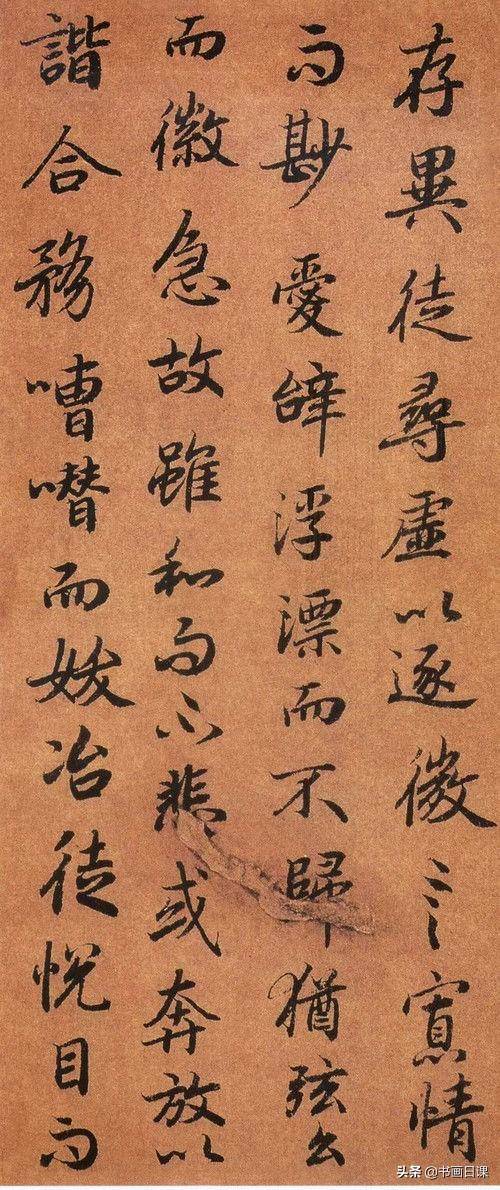 存異徒尋虛以逐微言寡情
而尠愛辭浮漂而不歸猶弦么
而徽急故雖和而不悲或奔放以
諧合務嘈囋而妖冶徒悅目而
头条 @书画日课